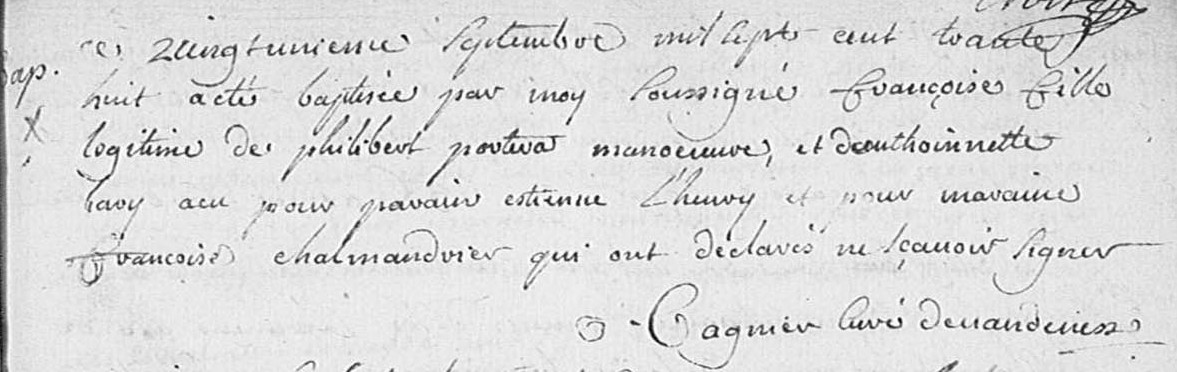 bap.
ce vingtunieme septembre mil sept cent trante
huit a eté baptisée par moy soussigné françoise fille
legitime de philibert portera manoeuvre, et deanthoinnette
a eu pour parain estienne Lheury et pour maraine
françoise chalmandrier qui ont declarés ne sçavoir signer
Gagnier curé